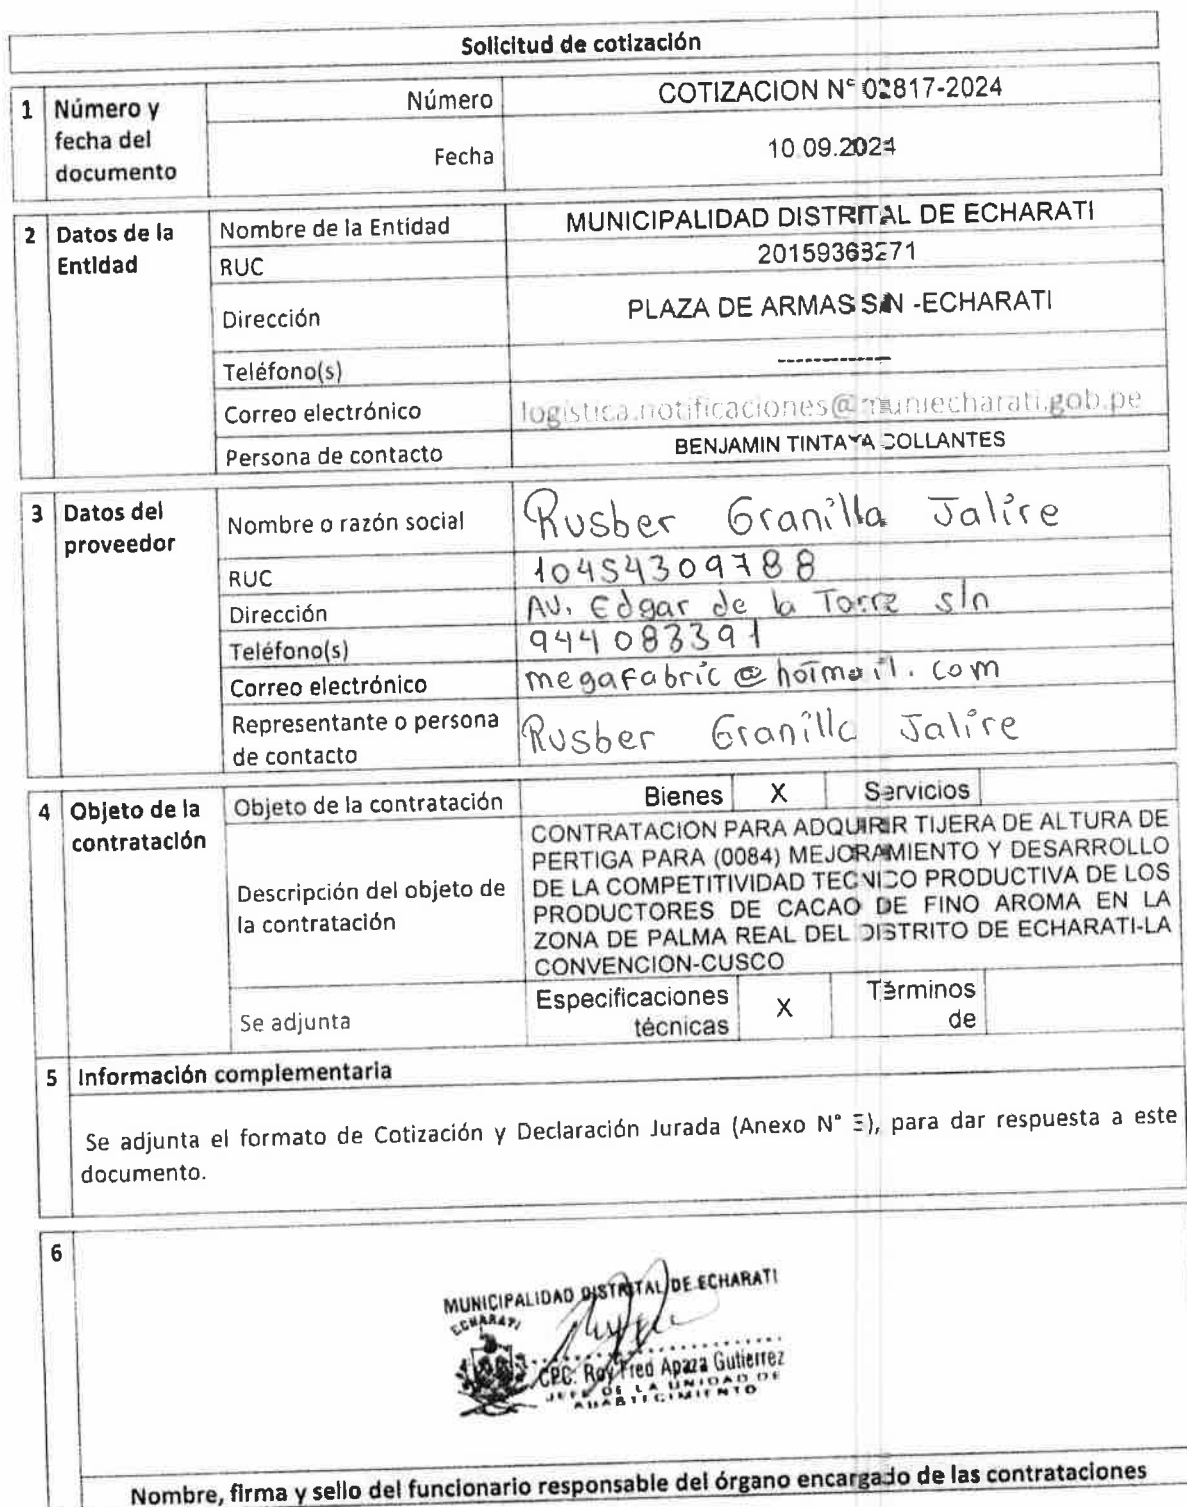 Solicitud de cotización
1 Número y fecha del documento
Número COTIZACION N° 02817-2024
Fecha 10.09.2024
2 Datos de la Entidad
Nombre de la Entidad MUNICIPALIDAD DISTRITAL DE ECHARATI
RUC 20159363271
Dirección PLAZA DE ARMAS S/N -ECHARATI
Teléfono(s) -------------
Correo electrónico logistica.notificaciones@muniecharati.gob.pe
Persona de contacto BENJAMIN TINTAYA COLLANTES
3 Datos del proveedor
Nombre o razón social Rusber Granilla Jalire
RUC 10454309788
Dirección Av. Edgar de la Torre s/n
Teléfono(s) 944083391
Correo electrónico megafabric@hotmail.com
Representante o persona de contacto Rusber Granilla Jalire
4 Objeto de la contratación
Objeto de la contratación Bienes X Servicios
Descripción del objeto de la contratación
CONTRATACION PARA ADQUIRIR TIJERA DE ALTURA DE
PERTIGA PARA (0084) MEJORAMIENTO Y DESARROLLO
DE LA COMPETITIVIDAD TECNICO PRODUCTIVA DE LOS
PRODUCTORES DE CACAO DE FINO AROMA EN LA
ZONA DE PALMA REAL DEL DISTRITO DE ECHARATI-LA
CONVENCION-CUSCO
Se adjunta Especificaciones técnicas X Términos de
5 Información complementaria
Se adjunta el formato de Cotización y Declaración Jurada (Anexo N° 5), para dar respuesta a este
documento.
6
MUNICIPALIDAD DISTRITAL DE ECHARATI
ECHARATI
CPC. Roy Fred Apaza Gutierrez
JEFE DE LA UNIDAD DE
ABASTECIMIENTO
Nombre, firma y sello del funcionario responsable del órgano encargado de las contrataciones